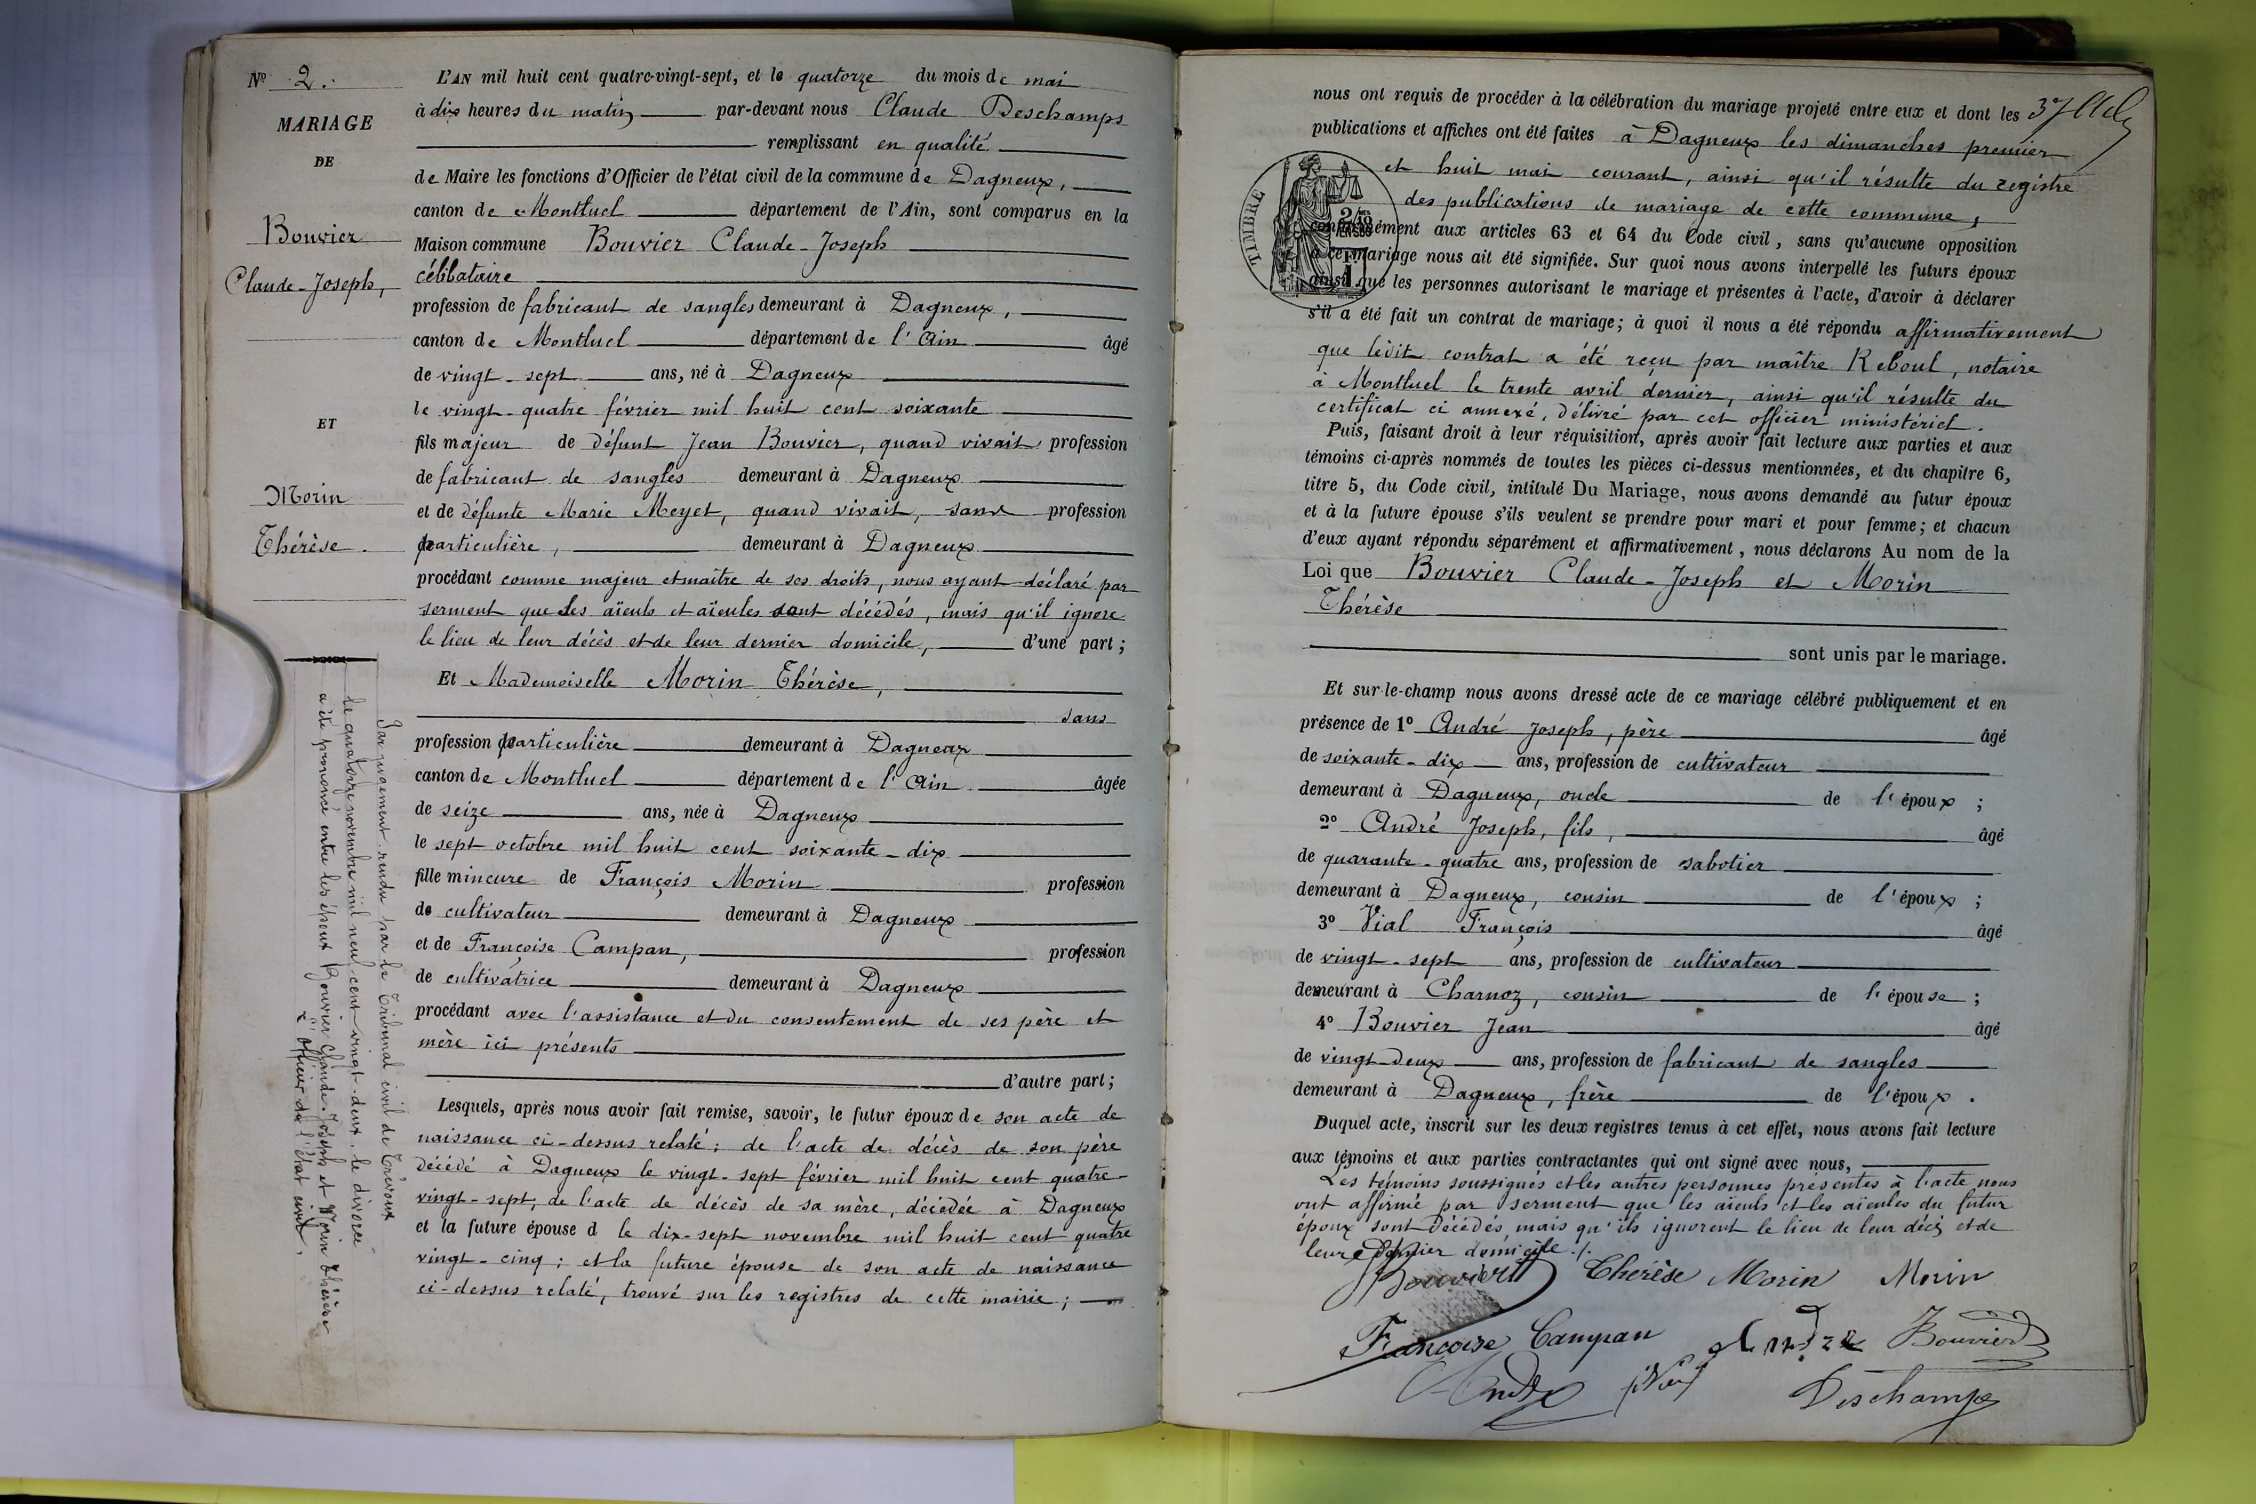 Nº 2.
MARIAGE
DE
Bouvier
Claude-Joseph,
ET
Morin
Thérèse.
Par jugement rendu par le Tribunal civil de Trévoux
le quatorze novembre mil neuf cent vingt-deux, le divorce
a été prononcé entre les époux Bouvier Claude-Joseph et Morin Thérèse
L'officier de l'état civil,
L'AN mil huit cent quatre-vingt-sept, et le quatorze du mois de mai
à dix heures du matin par-devant nous Claude Deschamps
remplissant en qualité
de Maire les fonctions d'Officier de l'état civil de la commune de Dagneux,
canton de Montluel département de l'Ain, sont comparus en la
Maison commune Bouvier Claude-Joseph
célibataire
profession de fabricant de sangles demeurant à Dagneux,
canton de Montluel département de l'Ain âgé
de vingt-sept ans, né à Dagneux
le vingt-quatre février mil huit cent soixante
fils majeur de défunt Jean Bouvier, quand vivait profession
de fabricant de sangles demeurant à Dagneux
et de défunte Marie Meyet, quand vivait, sans profession
particulière, demeurant à Dagneux
procédant comme majeur et maître de ses droits, nous ayant déclaré par
serment que les aïeuls et aïeules sont décédés, mais qu'il ignore
le lieu de leur décès et de leur dernier domicile, d'une part;
Et Mademoiselle Morin Thérèse,
sans
profession particulière demeurant à Dagneux
canton de Montluel département de l'Ain âgée
de seize ans, née à Dagneux
le sept octobre mil huit cent soixante-dix
fille mineure de François Morin profession
de cultivateur demeurant à Dagneux
et de Françoise Campan, profession
de cultivatrice demeurant à Dagneux
procédant avec l'assistance et du consentement de ses père et
mère ici présents
d'autre part;
Lesquels, après nous avoir fait remise, savoir, le futur époux de son acte de
naissance ci-dessus relaté; de l'acte de décès de son père
décédé à Dagneux le vingt-sept février mil huit cent quatre-
vingt-sept; de l'acte de décès de sa mère, décédée à Dagneux
et la future épouse d le dix-sept novembre mil huit cent quatre
vingt-cinq; et la future épouse de son acte de naissance
ci-dessus relaté, trouvé sur les registres de cette mairie;
nous ont requis de procéder à la célébration du mariage projeté entre eux et dont les
publications et affiches ont été faites à Dagneux les dimanches premier
et huit mai courant, ainsi qu'il résulte du registre
des publications de mariage de cette commune,
TIMBRE
conformément aux articles 63 et 64 du Code civil, sans qu'aucune opposition
à ce mariage nous ait été signifiée. Sur quoi nous avons interpellé les futurs époux
ainsi que les personnes autorisant le mariage et présentes à l'acte, d'avoir à déclarer
s'il a été fait un contrat de mariage; à quoi il nous a été répondu affirmativement
que ledit contrat a été reçu par maître Reboul, notaire
à Montluel le trente avril dernier, ainsi qu'il résulte du
certificat ci annexé, délivré par cet officier ministériel.
Puis, faisant droit à leur réquisition, après avoir fait lecture aux parties et aux
témoins ci-après nommés de toutes les pièces ci-dessus mentionnées, et du chapitre 6,
titre 5, du Code civil, intitulé Du Mariage, nous avons demandé au futur époux
et à la future épouse s'ils veulent se prendre pour mari et pour femme; et chacun
d'eux ayant répondu séparément et affirmativement, nous déclarons Au nom de la
Loi que Bouvier Claude-Joseph et Morin
Thérèse
sont unis par le mariage.
Et sur-le-champ nous avons dressé acte de ce mariage célébré publiquement et en
présence de 1º André Joseph, père âgé
de soixante-dix ans, profession de cultivateur
demeurant à Dagneux, oncle de l'époux;
2º André Joseph, fils, âgé
de quarante-quatre ans, profession de sabotier
demeurant à Dagneux, cousin de l'époux;
3º Vial François âgé
de vingt-sept ans, profession de cultivateur
demeurant à Charnoz, cousin de l'épouse;
4º Bouvier Jean âgé
de vingt-deux ans, profession de fabricant de sangles
demeurant à Dagneux, frère de l'époux.
Duquel acte, inscrit sur les deux registres tenus à cet effet, nous avons fait lecture
aux témoins et aux parties contractantes qui ont signé avec nous,
Les témoins soussignés et les autres personnes présentes à l'acte nous
ont affirmé par serment que les aïeuls et les aïeules du futur
époux sont décédés mais qu'ils ignorent le lieu de leur décès et de
leur dernier domicile ./.
Bouvier Thérèse Morin Morin
Françoise Campan André Bouvier
André Vial Deschamps